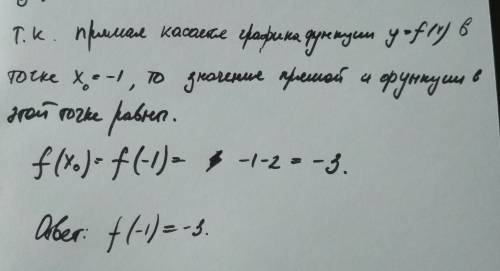 Т.к. прямая касается графика функции y=f(x) в
точке x₀=-1, то значение прямой и функции в
этой точке равны.
f(x₀)= f(-1)= -1-2 = -3.
Ответ: f(-1)=-3.